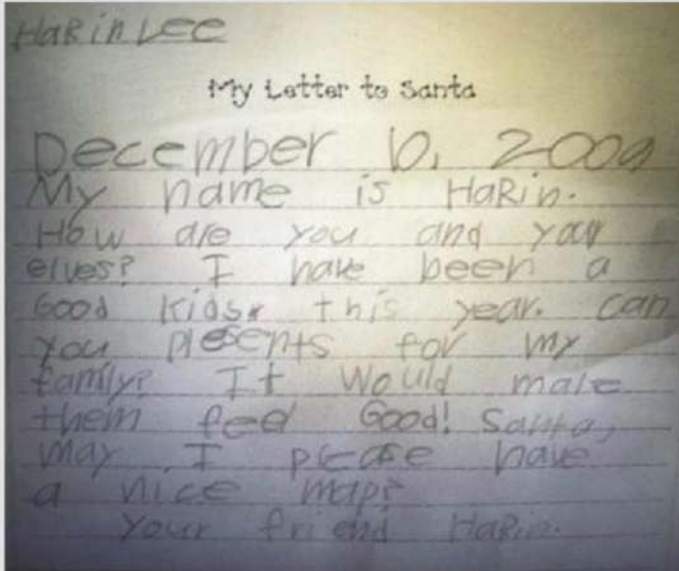 HaRin Lee
My Letter to Santa
December 10, 2009
My name is HaRin.
How are you and your
elves? I have been a
Good kids this year. can
you presents for my
family? It would make
them feel Good! Santa,
may I please have
a nice map?
your friend HaRin.